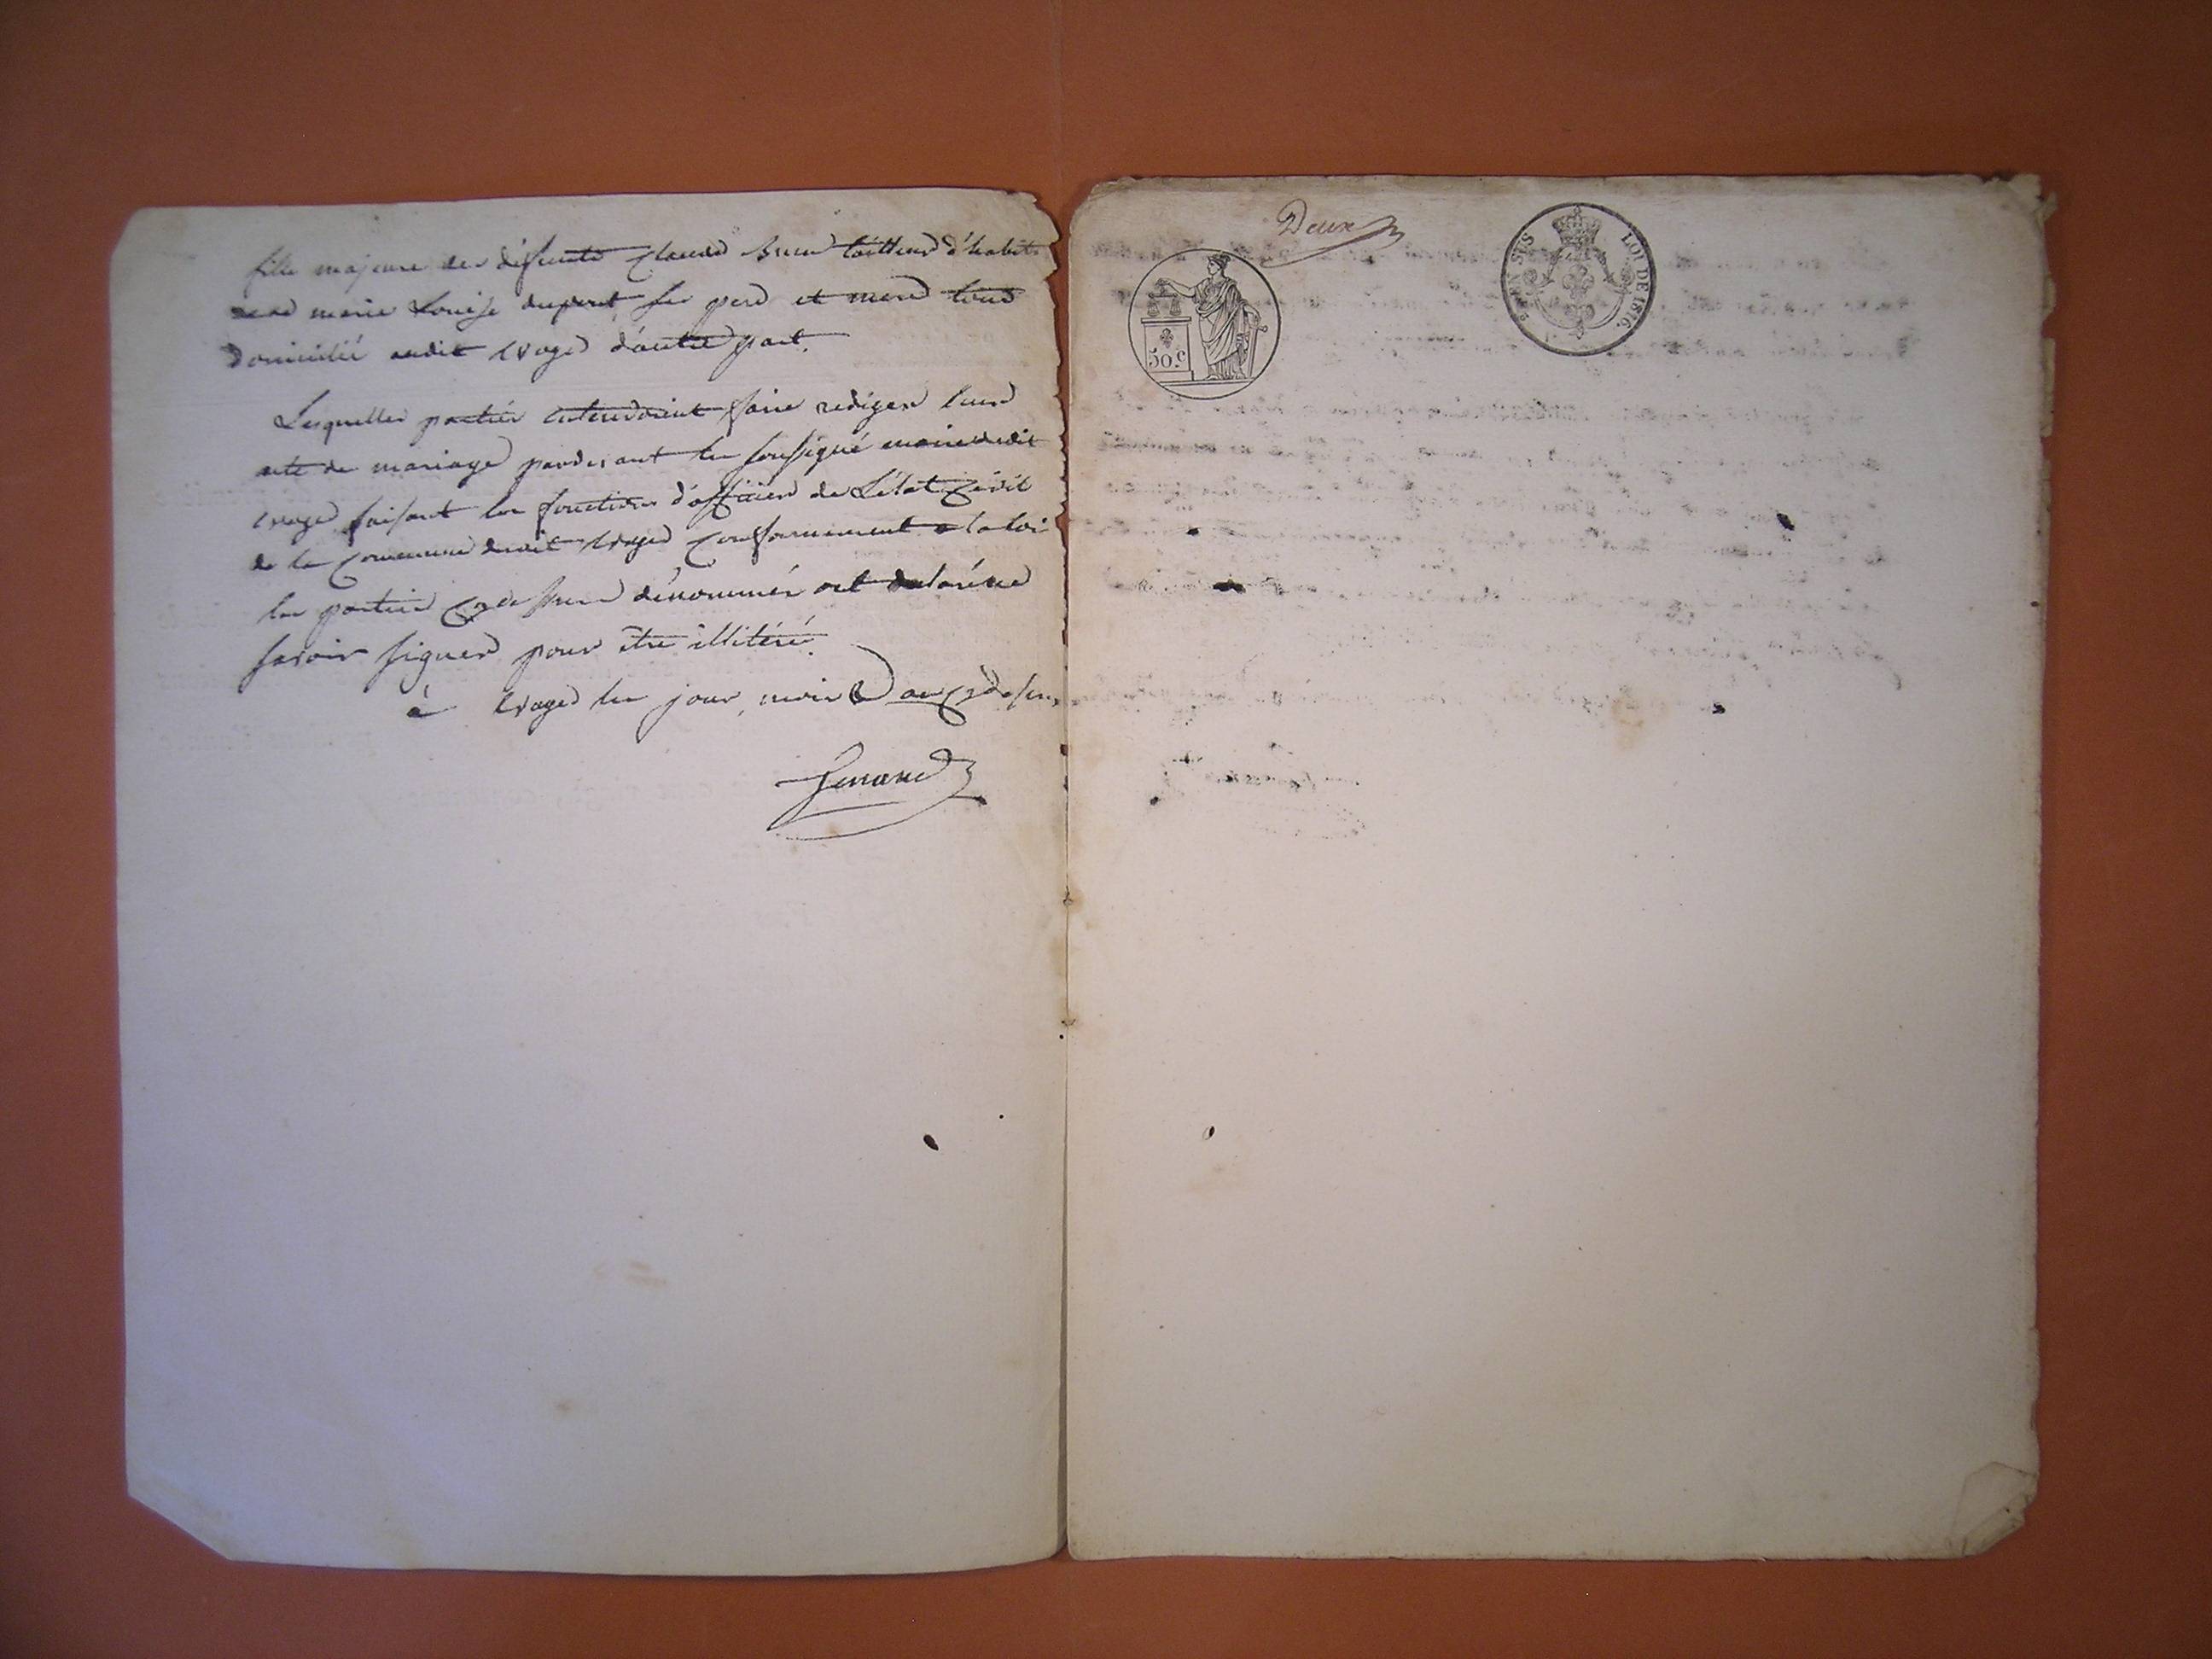 fille majeure des défunts Claude tailleur d'habits
marie Louise dupont ses pere et mere tous
domicilié audit d'autre part.
Lesquelles parties entendoient faire rediger leur
acte de mariage pardevant le sousigné maire dudit
faisant les fonctions d'officier de L'état Civil
de la Commune dudit Conformement a la loi
les parties Cy dessus dénommés ont
savoir signer pour être illitéré.
à les jour, mois & an Cy dessus
Deux
50.C
EN SUS
LOI DE 1816.